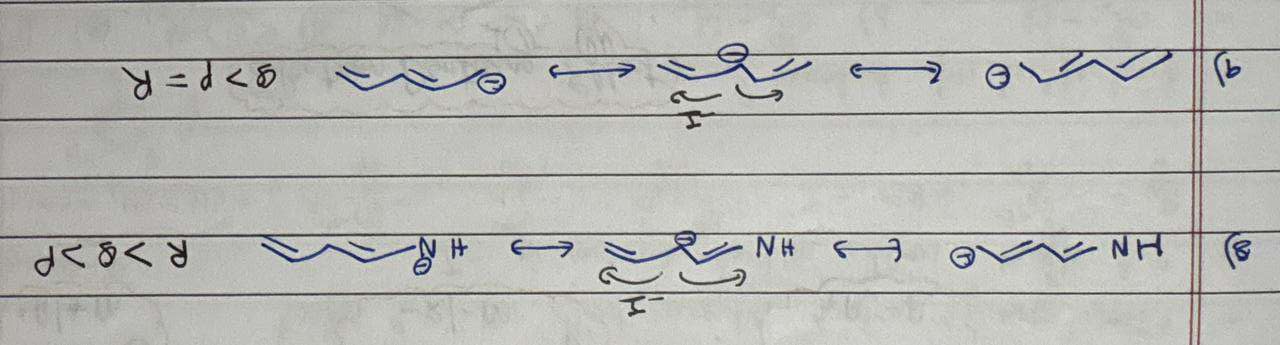 -I
8) HN ⊖ ↔ HN ⊖ ↔ H N ⊖ R > Q > P
-I
9) ⊖ ↔ ⊖ ↔ ⊖ Q > P = R